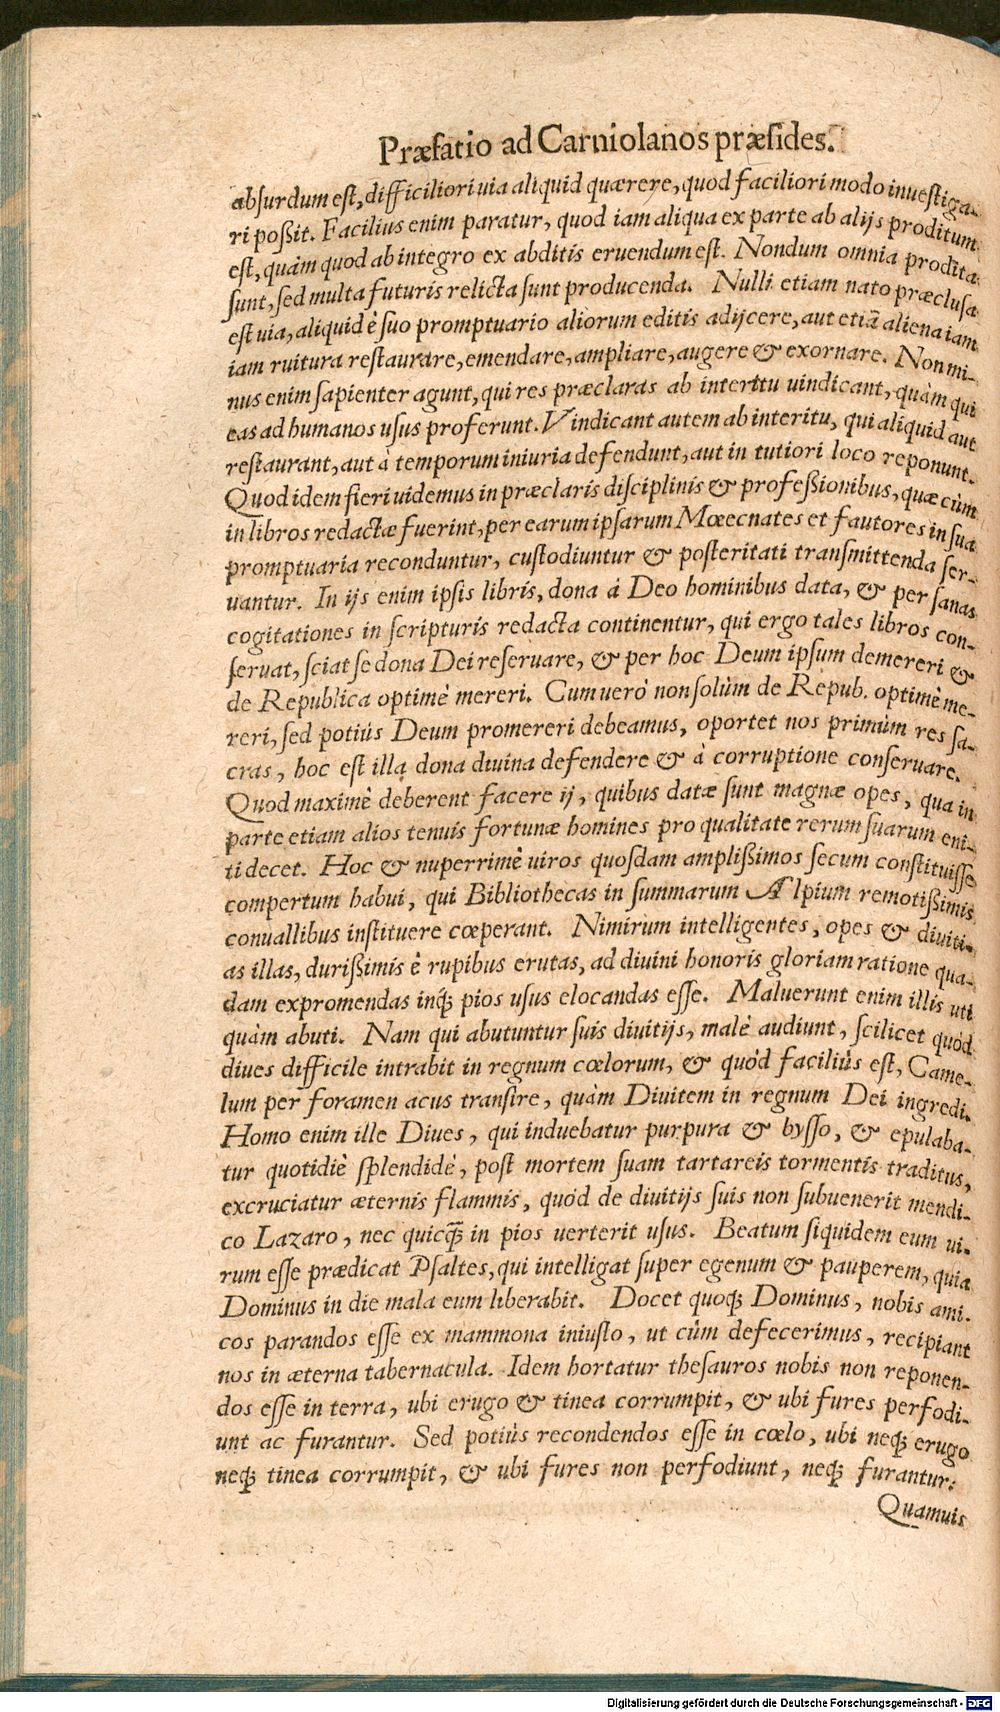 Præfatio ad Carniolanos præsides.
absurdum est, difficiliori uia aliquid quærere, quod faciliori modo inuestiga-
ri poßit. Facilius enim paratur, quod iam aliqua ex parte ab alijs proditum
est, quàm quod ab integro ex abditis eruendum est. Nondum omnia prodita
sunt, sed multa futuris relicta sunt producenda. Nulli etiam nato præclusa
est uia, aliquid è suo promptuario aliorum editis adijcere, aut etiã aliena iam
iam ruitura restaurare, emendare, ampliare, augere & exornare. Non mi-
nus enim sapienter agunt, qui res præclaras ab interitu uindicant, quàm qui
eas ad humanos usus proferunt. Vindicant autem ab interitu, qui aliquid aut
restaurant, aut à temporum iniuria defendunt, aut in tutiori loco reponunt.
Quod idem fieri uidemus in præclaris disciplinis & profeßionibus, quæ cùm
in libros redactæ fuerint, per earum ipsarum Mœecnates et fautores in sua
promptuaria reconduntur, custodiuntur & posteritati transmittenda ser-
uantur. In ijs enim ipsis libris, dona à Deo hominibus data, & per sanas
cogitationes in scripturis redacta continentur, qui ergo tales libros con-
seruat, sciat se dona Dei reseruare, & per hoc Deum ipsum demereri &
de Republica optimè mereri. Cum uerò non solùm de Repub. optimè me-
reri, sed potiùs Deum promereri debeamus, oportet nos primùm res sa-
cras, hoc est illa dona diuina defendere & à corruptione conseruare.
Quod maximè deberent facere ij, quibus datæ sunt magnæ opes, qua in
parte etiam alios tenuis fortunæ homines pro qualitate rerum suarum eni-
ti decet. Hoc & nuperrimè uiros quosdam amplißimos secum constituisse
compertum habui, qui Bibliothecas in summarum Alpium remotißimis
conuallibus instituere cœperant. Nimirum intelligentes, opes & diuiti-
as illas, durißimis è rupibus erutas, ad diuini honoris gloriam ratione qua-
dam expromendas inq́; pios usus elocandas esse. Maluerunt enim illis uti
quàm abuti. Nam qui abutuntur suis diuitijs, malè audiunt, scilicet quòd
diues difficile intrabit in regnum cœlorum, & quòd faciliùs est, Came-
lum per foramen acus transire, quàm Diuitem in regnum Dei ingredi.
Homo enim ille Diues, qui induebatur purpura & bysso, & epulaba-
tur quotidiè splendidè, post mortem suam tartareis tormentis traditus,
excruciatur æternis flammis, quòd de diuitijs suis non subuenerit mendi-
co Lazaro, nec quicq̃; in pios uerterit usus. Beatum siquidem eum ui-
rum esse prædicat Psaltes, qui intelligat super egenum & pauperem, quia
Dominus in die mala eum liberabit. Docet quoq; Dominus, nobis ami-
cos parandos esse ex mammona iniusto, ut cùm defecerimus, recipiant
nos in æterna tabernacula. Idem hortatur thesauros nobis non reponen-
dos esse in terra, ubi erugo & tinea corrumpit, & ubi fures perfodi-
unt ac furantur. Sed potiùs recondendos esse in cœlo, ubi neq; erugo
neq; tinea corrumpit, & ubi fures non perfodiunt, neq; furantur:
Quamuis
Digitalisierung gefördert durch die Deutsche Forschungsgemeinschaft - DFG